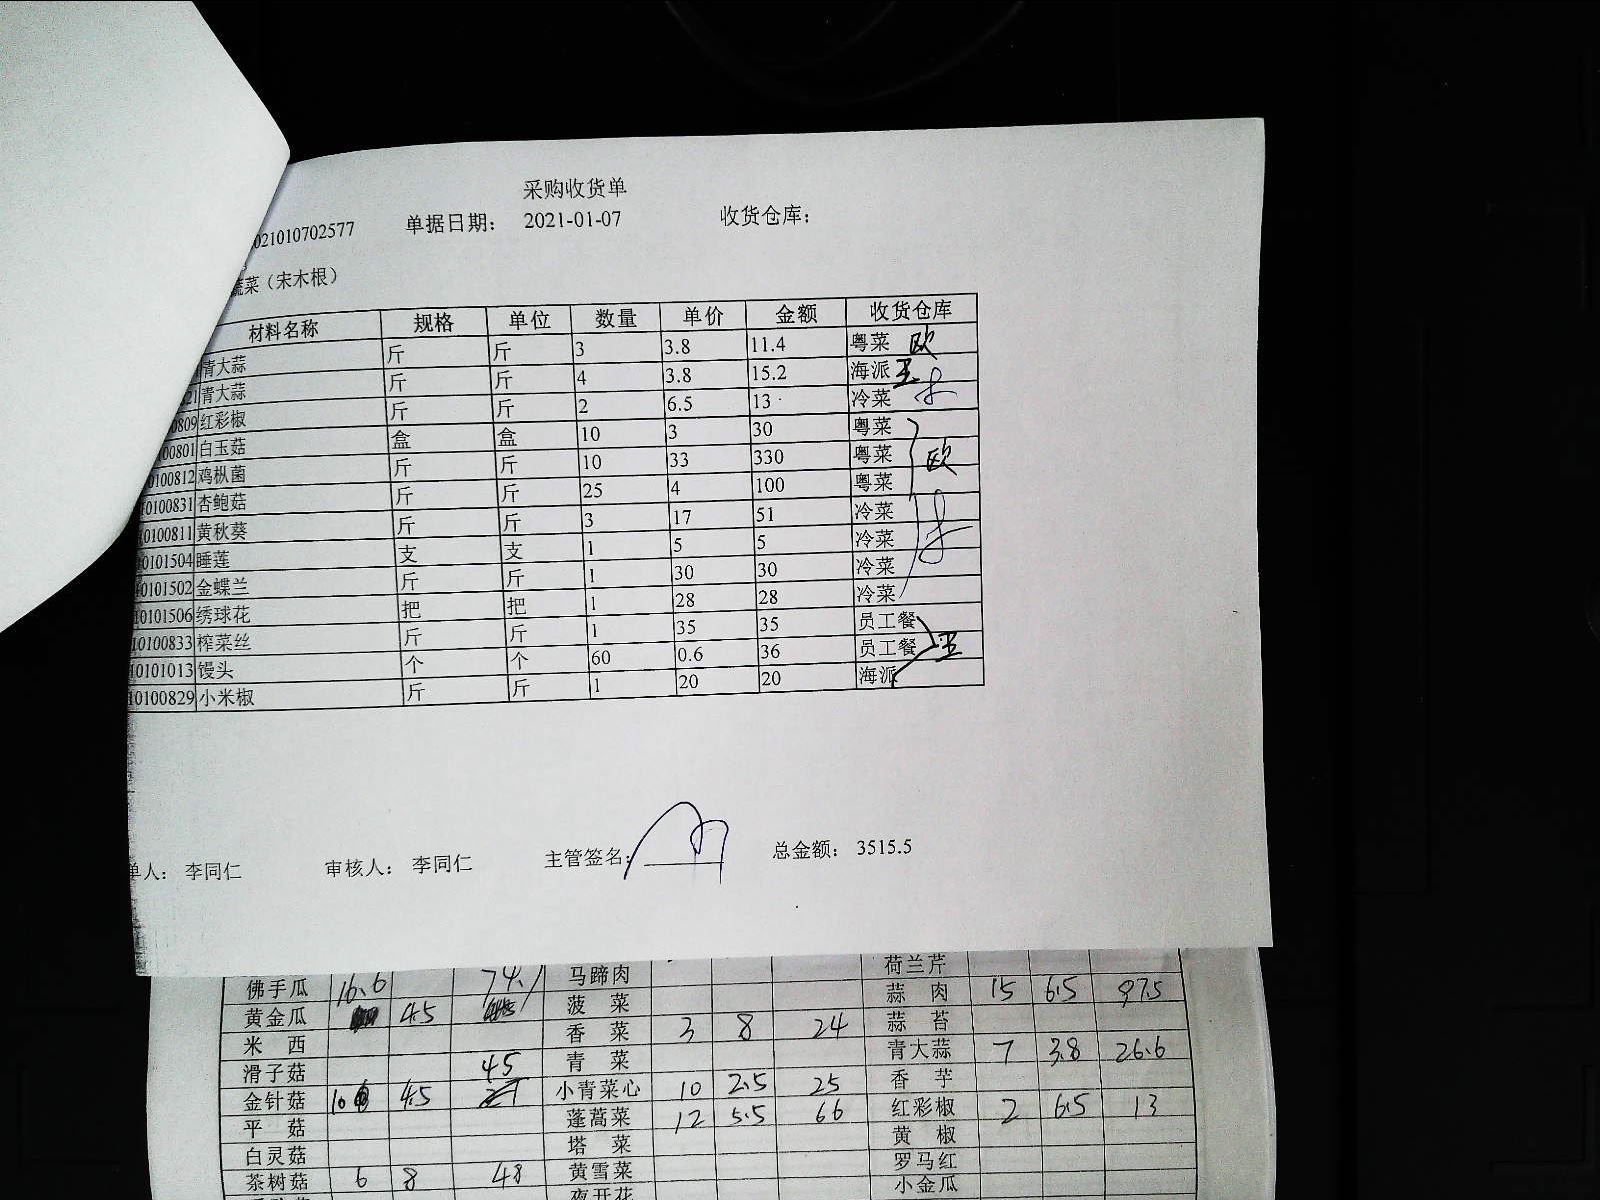 采购收货单
021010702577 单据日期： 2021-01-07 收货仓库：
蔬菜（宋木根）
材料名称 规格 单位 数量 单价 金额 收货仓库
青大蒜 斤 斤 3 3.8 11.4 粤菜 欧
21 青大蒜 斤 斤 4 3.8 15.2 海派 王
0809 红彩椒 斤 斤 2 6.5 13 冷菜
00801 白玉菇 盒 盒 10 3 30 粤菜
0100812 鸡枞菌 斤 斤 10 33 330 粤菜 欧
0100831 杏鲍菇 斤 斤 25 4 100 粤菜
0100811 黄秋葵 斤 斤 3 17 51 冷菜
0101504 睡莲 支 支 1 5 5 冷菜
0101502 金蝶兰 斤 斤 1 30 30 冷菜
10101506 绣球花 把 把 1 28 28 冷菜
10100833 榨菜丝 斤 斤 1 35 35 员工餐
10101013 馒头 个 个 60 0.6 36 员工餐 王
10100829 小米椒 斤 斤 1 20 20 海派
单人： 李同仁 审核人： 李同仁 主管签名： 总金额： 3515.5
马蹄肉 荷兰芹
佛手瓜 16.6 74.1 菠菜 蒜肉 15 6.5 97.5
黄金瓜 4.5 香菜 3 8 24 蒜苔
米西 青菜 青大蒜 7 3.8 26.6
滑子菇 45 小青菜心 10 2.5 25 香芋
金针菇 10 4.5 蓬蒿菜 12 5.5 66 红彩椒 2 6.5 13
平菇 塔菜 黄椒
白灵菇 黄雪菜 罗马红
茶树菇 6 8 48 夜开花 小金瓜